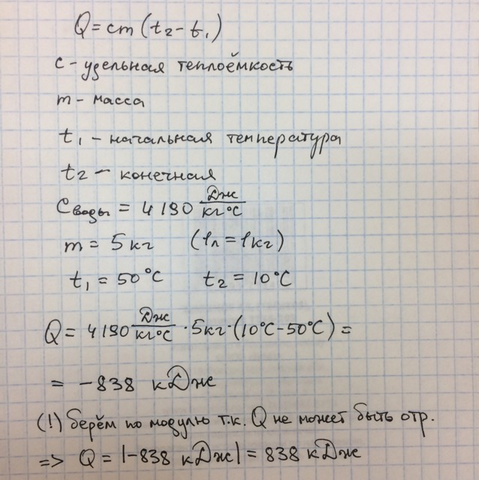 Q = cm (t₂ - t₁)
c - удельная теплоёмкость
m - масса
t₁ - начальная температура
t₂ - конечная
Cводы = 4190 Дж/кг°С
m = 5 кг (1л = 1кг)
t₁ = 50°С t₂ = 10°С
Q = 4190 Дж/кг°С · 5кг · (10°С - 50°С) =
= -838 кДж
(!) берём по модулю т.к. Q не может быть отр.
=> Q = |-838 кДж| = 838 кДж